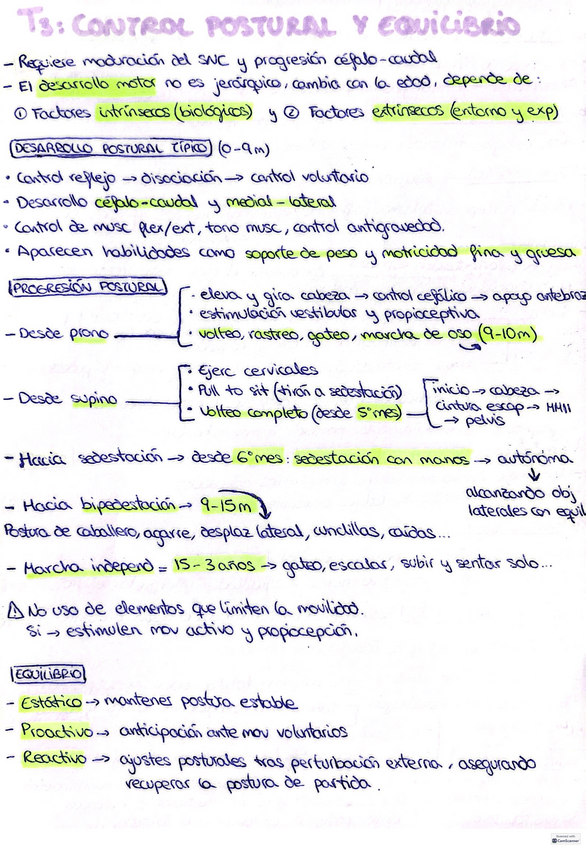 T3: CONTROL POSTURAL Y EQUILIBRIO
- Requiere maduración del SNC y progresión céfalo-caudal
- El desarrollo motor no es jerárquico, cambia con la edad, depende de:
① Factores intrínsecos (biológicos) y ② Factores extrínsecos (entorno y exp)
DESARROLLO POSTURAL TÍPICO (0-9m)
• Control reflejo → disociación → control voluntario
• Desarrollo céfalo-caudal y medial-lateral
• Control de musc flex/ext, tono musc, control antigravedad.
• Aparecen habilidades como soporte de peso y motricidad fina y gruesa
PROGRESIÓN POSTURAL
- Desde prono
• eleva y gira cabeza → control cefálico → apoyo antebraz
• estimulación vestibular y propioceptiva
• volteo, rastreo, gateo, marcha de oso (9-10m)
- Desde supino
• Ejerc cervicales
• Pull to sit (tiran a sedestación)
• Volteo completo (desde 5º mes)
inicio → cabeza →
cintura escap → MMII
→ pelvis
- Hacia sedestación → desde 6º mes: sedestación con manos → autónoma
↓
alcanzando obj
laterales con equil
- Hacia bipedestación → 9-15m
Postura de caballero, agarre, desplaz lateral, cunclillas, caídas...
- Marcha independ = 15-3 años → gateo, escalar, subir y sentar solo...
⚠ No uso de elementos que limiten la movilidad.
Si → estimulen mov activo y propiocepción.
EQUILIBRIO
- Estático → mantener postura estable
- Proactivo → anticipación ante mov voluntarios
- Reactivo → ajustes posturales tras perturbación externa, asegurando
recuperar la postura de partida.
CamScanner